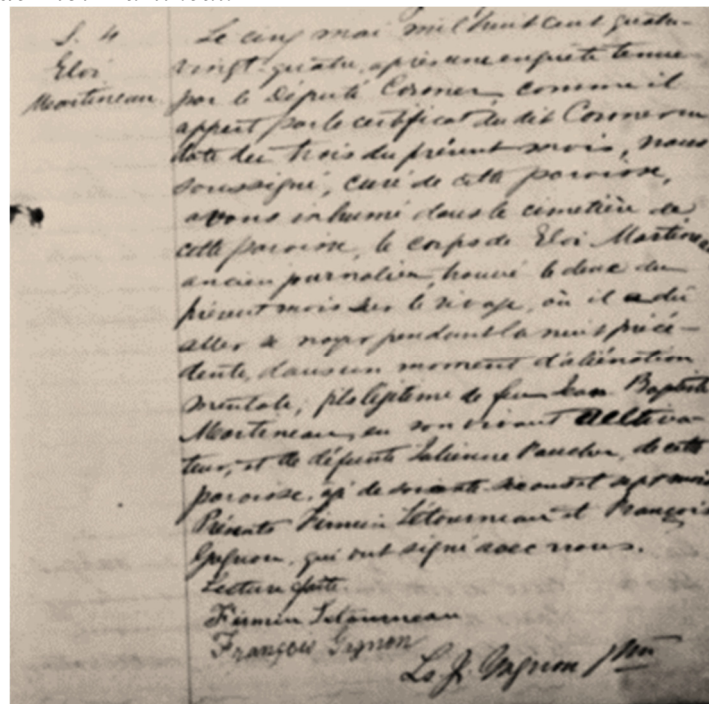 S. 4
Eloi
Martineau
Le cinq mai mil huit cent quatre-
vingt-quatre, après une enquête tenue
par le Député Coroner, comme il
appert par le certificat du dit Coroner en
date du trois du présent mois, nous
soussigné, curé de cette paroisse,
avons inhumé dans le cimetière de
cette paroisse, le corps de Eloi Martineau
ancien journalier, trouvé le deux du
présent mois sur le rivage, où il a dû
aller se noyer pendant la nuit précé-
dente, dans un moment d'aliénation
mentale; fils légitime de feu Jean Baptiste
Martineau, en son vivant cultiva-
teur, et de défunte Julienne Paucher, de cette
paroisse, âgé de soixante-six ans et sept mois
Présents Firmin Létourneau et François
Gagnon, qui ont signé avec nous.
Lecture faite.
Firmin Letourneau
François Gagnon
Ls J. Gagnon Ptre